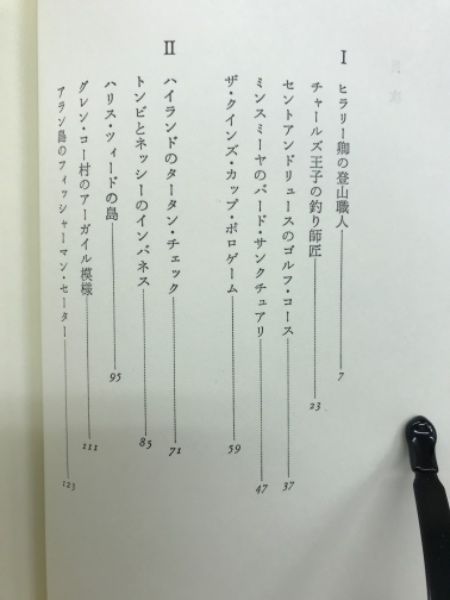 I
ヒラリー卿の登山職人 7
チャールズ王子の釣り師匠 23
セントアンドリュースのゴルフ・コース 37
ミンスミーヤのバード・サンクチュアリ 47
ザ・クインズ・カップ・ポロゲーム 59
II
ハイランドのタータン・チェック 71
トンビとネッシーのインバネス 85
ハリス・ツィードの島 95
グレン・コー村のアーガイル模様 111
アラン島のフィッシャーマン・セーター 123